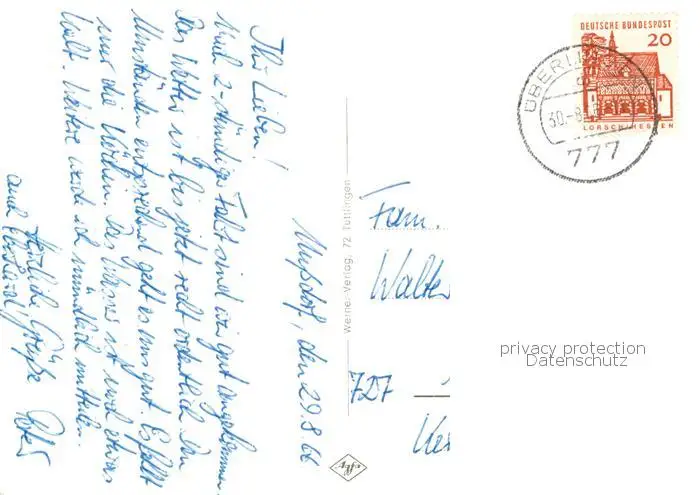 Mußdorf, den 29.8.66
Ihr Lieben!
Nach 2-stündiger Fahrt sind wir gut angekommen.
Das Wetter ist bis jetzt recht ordentlich. Den
Umständen entsprechend geht es uns gut. Es fehlt
nur die Köchin. Das Wasser ist noch etwas
kalt. Weitere werde ich mündlich mitteilen.
Herzliche Grüße Peter
auch
Werner-Verlag, 72 Tuttlingen
Agfa
DEUTSCHE BUNDESPOST
20
LORSCH/HESSEN
ÜBERLIN
30.-8.
777
Fam.
Walter
727
privacy protection
Datenschutz